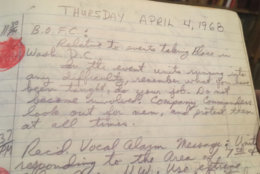 THURSDAY APRIL 4, 1968
B.O.F.C:
Relative to events taking Place in
Wash. D.C.
In the event units run into
any difficulty, remember what you have
been taught, do your job. Do not
become involved. Company Commanders
look out for men, and protect them
at all times.
Recd. Vocal Alarm Message
responding to the Area of
N.W. Use extreme